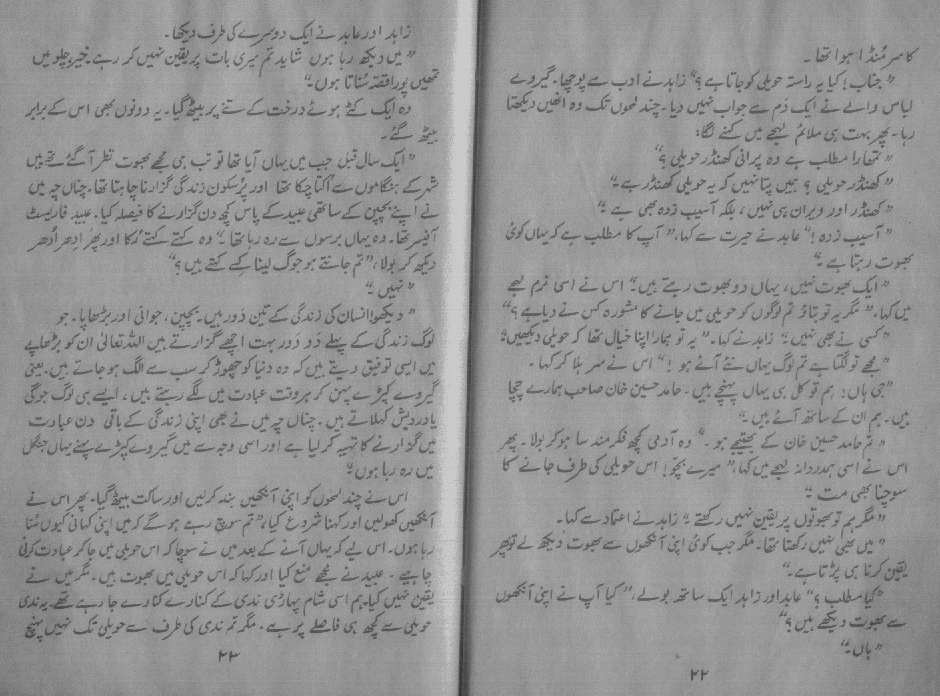 کا سر مُنڈا ہوا تھا۔
”جناب! کیا یہ راستہ حویلی کو جاتا ہے؟“ زاہد نے ادب سے پوچھا۔ گیروے
لباس والے نے ایک دَم سے جواب نہیں دیا۔ چند لمحوں تک وہ انھیں دیکھتا
رہا۔ پھر بہت ہی ملائم لہجے میں کہنے لگا:
”تمھارا مطلب ہے وہ پرانی کھنڈر حویلی؟“
”کھنڈر حویلی؟ ہمیں پتا نہیں کہ یہ حویلی کھنڈر ہے۔“
”کھنڈر اور ویران ہی نہیں، بلکہ آسیب زدہ بھی ہے۔“
”آسیب زدہ!“ عابد نے حیرت سے کہا، ”آپ کا مطلب ہے کہ یہاں کوئی
بھوت رہتا ہے۔“
”ایک بھوت نہیں، یہاں دو بھوت رہتے ہیں۔“ اس نے اسی نرم لہجے
میں کہا، ”مگر یہ تو بتاؤ تم لوگوں کو حویلی میں جانے کا مشورہ کس نے دیا ہے؟“
”کسی نے بھی نہیں۔“ زاہد نے کہا۔ ”یہ تو ہمارا اپنا خیال تھا کہ حویلی دیکھیں؟
”مجھے تو لگتا ہے تم لوگ یہاں نئے آئے ہو!“ اس نے سر ہلا کر کہا۔
”جی ہاں! ہم تو کل ہی یہاں پہنچے ہیں۔ حامد حسین خان صاحب ہمارے چچا
ہیں۔ ہم ان کے ساتھ آئے ہیں۔“
”تم حامد حسین خان کے بھتیجے ہو۔“ وہ آدمی کچھ فکر مند سا ہو کر بولا۔ پھر
اس نے اسی ہمدردانہ لہجے میں کہا، ”میرے بچّو! اس حویلی کی طرف جانے کا
سوچنا بھی مت۔“
”مگر ہم تو بھوتوں پر یقین نہیں رکھتے۔“ زاہد نے اعتماد سے کہا۔
”میں بھی نہیں رکھتا تھا۔ مگر جب کوئی اپنی آنکھوں سے بھوت دیکھ لے تو پھر
یقین کرنا ہی پڑتا ہے۔“
”کیا مطلب؟“ عابد اور زاہد ایک ساتھ بولے، ”کیا آپ نے اپنی آنکھوں
سے بھوت دیکھے ہیں؟“
”ہاں۔“
۲۲
زاہد اور عابد نے ایک دوسرے کی طرف دیکھا۔
”میں دیکھ رہا ہوں شاید تم میری بات پر یقین نہیں کر رہے۔ خیر، چلو میں
تمھیں پورا قصّہ سُناتا ہوں۔“
وہ ایک کٹے ہوئے درخت کے تنے پر بیٹھ گیا۔ یہ دونوں بھی اس کے برابر
بیٹھ گئے۔
”ایک سال قبل جب میں یہاں آیا تھا تو تب ہی مجھے بھوت نظر آ گئے تھے میں
شہر کے ہنگاموں سے اُکتا چکا تھا اور پُر سکون زندگی گزارنا چاہتا تھا۔ چناں چہ میں
نے اپنے بچپن کے ساتھی عبید کے پاس کچھ دن گزارنے کا فیصلہ کیا۔ عبید فاریسٹ
آفیسر تھا۔ وہ یہاں برسوں سے رہ رہا تھا۔“ وہ کہتے کہتے رُکا اور پھر اِدھر اُدھر
دیکھ کر بولا، ”تم جانتے ہو جوگ لینا کِسے کہتے ہیں؟“
”نہیں۔“
”دیکھو! انسان کی زندگی کے تین دَور ہیں۔ بچپن، جوانی اور بڑھاپا۔ جو
لوگ زندگی کے پہلے دو دَور بہت اچھے گزارتے ہیں اللہ تعالیٰ ان کو بڑھاپے
میں ایسی توفیق دیتے ہیں کہ وہ دنیا کو چھوڑ کر سب سے الگ ہو جاتے ہیں۔ یعنی
گیروے کپڑے پہن کر ہر وقت عبادت میں لگے رہتے ہیں۔ ایسے ہی لوگ جوگی
یا درویش کہلاتے ہیں۔ چناں چہ میں نے بھی اپنی زندگی کے باقی دن عبادت
میں گزارنے کا تہیہ کر لیا ہے اور اسی وجہ سے میں گیروے کپڑے پہنے یہاں جنگل
میں رہ رہا ہوں۔“
اس نے چند لمحوں کو اپنی آنکھیں بند کر لیں اور ساکت بیٹھ گیا۔ پھر اس نے
آنکھیں کھولیں اور کہنا شروع کیا، ”تم سوچ رہے ہو گے کہ میں اپنی کہانی کیوں سُنا
رہا ہوں۔ اس لیے کہ یہاں آنے کے بعد میں نے سوچا کہ اس حویلی میں جا کر عبادت کرنی
چاہیے۔ عبید نے مجھے منع کیا اور کہا کہ اس حویلی میں بھوت ہیں۔ مگر میں نے
یقین نہیں کیا۔ ہم اسی شام پہاڑی ندی کے کنارے کنارے جا رہے تھے۔ یہ ندی
حویلی سے کچھ ہی فاصلے پر ہے۔ مگر تم ندی کی طرف سے حویلی تک نہیں پہنچ
۲۳